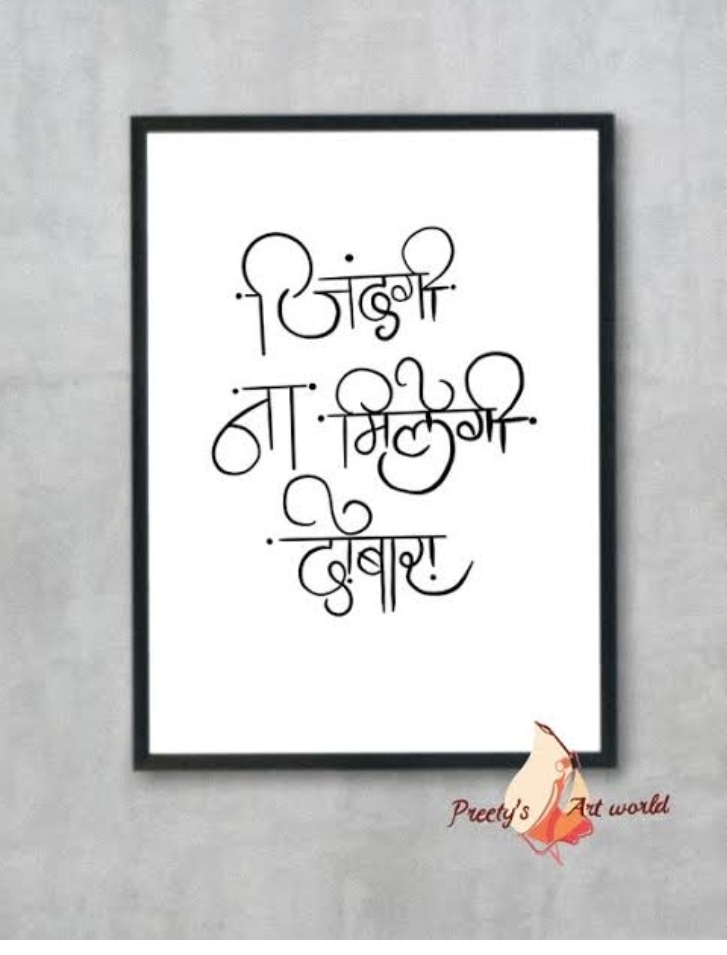 जिंदगी
ना मिलेगी
दोबारा
Preety's Art world